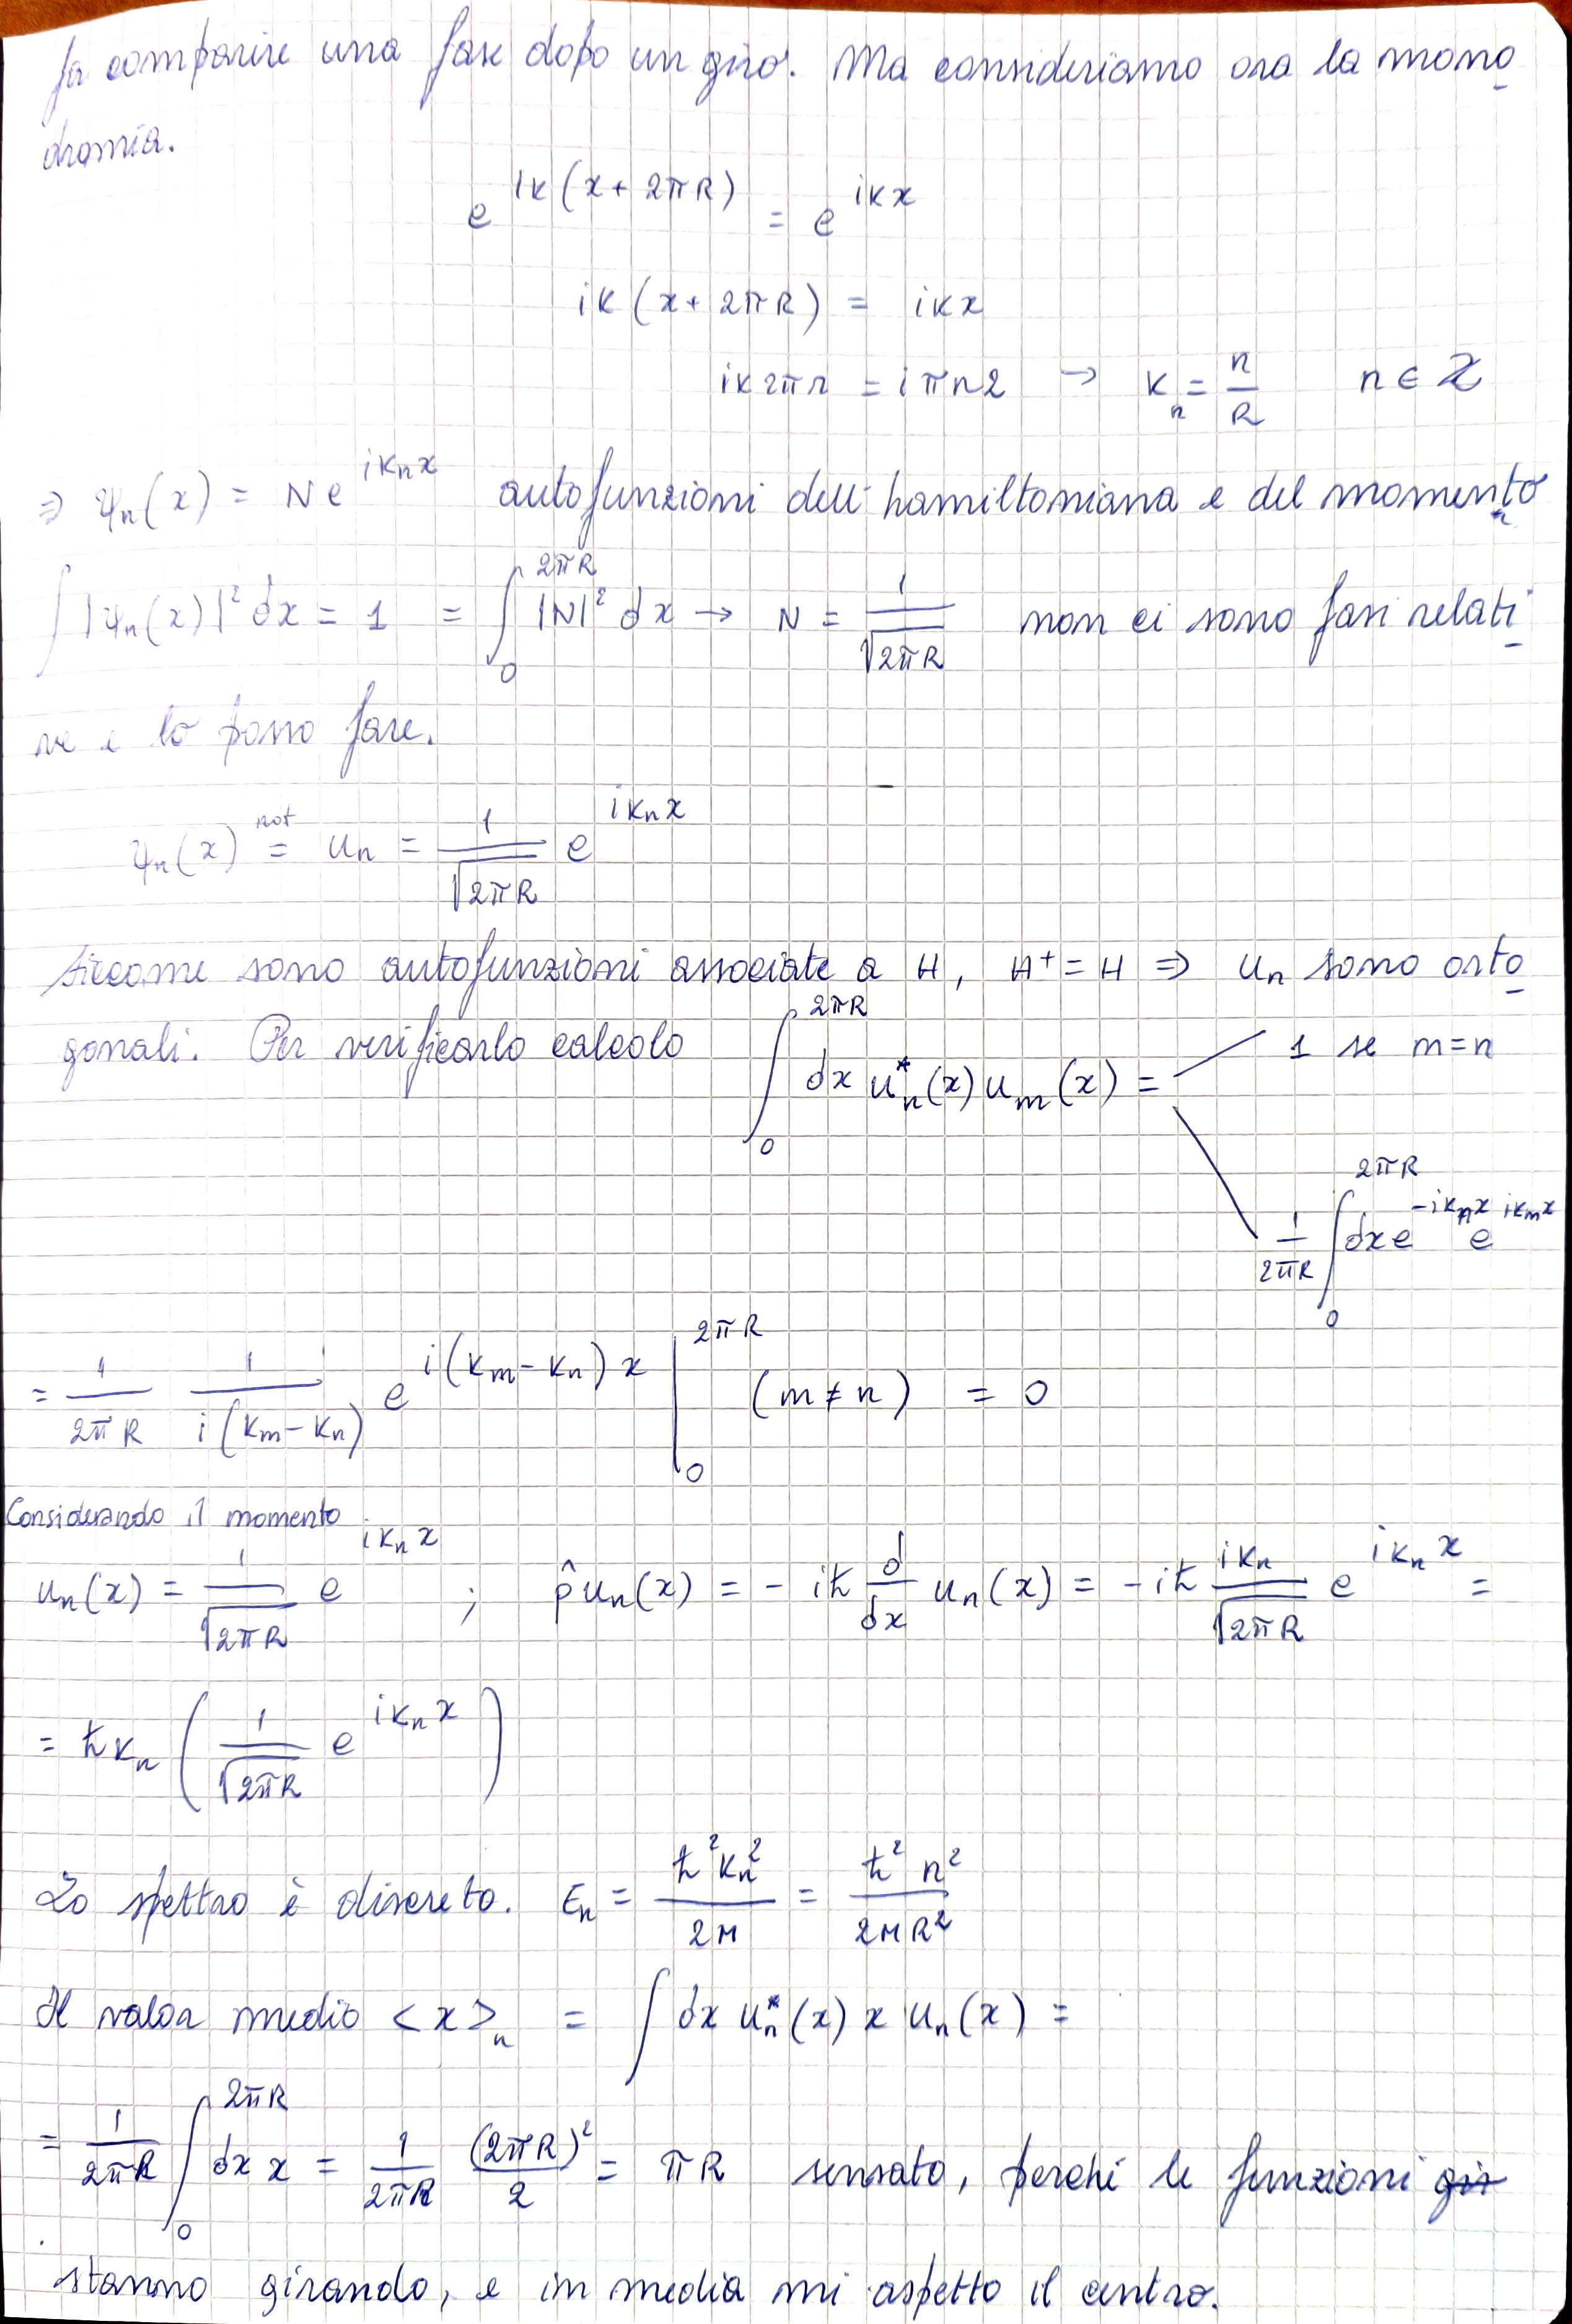 fa comparire una fase dopo un giro. Ma consideriamo ora la mono
dromia.
e^{ik(x+2πR)} = e^{ikx}
ik(x+2πR) = ikx
ik2πr = iπn2 → k_n = n/R n ∈ Z
⇒ ψ_n(x) = N e^{ik_n x} autofunzioni dell'hamiltoniana e del momento
∫|ψ_n(x)|² dx = 1 = ∫_0^{2πR} |N|² dx → N = 1/√(2πR) non ci sono fasi relati
ve e lo posso fare.
ψ_n(x) =^{not} u_n = 1/√(2πR) e^{ik_n x}
Siccome sono autofunzioni associate a H, H⁺ = H ⇒ u_n sono orto
gonali. Per verificarlo calcolo ∫_0^{2πR} dx u*_n(x) u_m(x) = 1 se m=n
1/(2πR) ∫_0^{2πR} dx e^{-ik_n x} e^{ik_m x}
= 1/(2πR) 1/(i(k_m - k_n)) e^{i(k_m - k_n)x} |_0^{2πR} (m ≠ n) = 0
Considerando il momento
u_n(x) = 1/√(2πR) e^{ik_n x} ; p̂ u_n(x) = -iħ d/dx u_n(x) = -iħ ik_n/√(2πR) e^{ik_n x} =
= ħk_n (1/√(2πR) e^{ik_n x})
Lo spettro è discreto. E_n = ħ²k_n²/2M = ħ²n²/2MR²
Il valor medio <x>_n = ∫ dx u*_n(x) x u_n(x) =
= 1/(2πR) ∫_0^{2πR} dx x = 1/(2πR) (2πR)²/2 = πR sensato, perché le funzioni gir
stanno girando, e in media mi aspetto il centro.